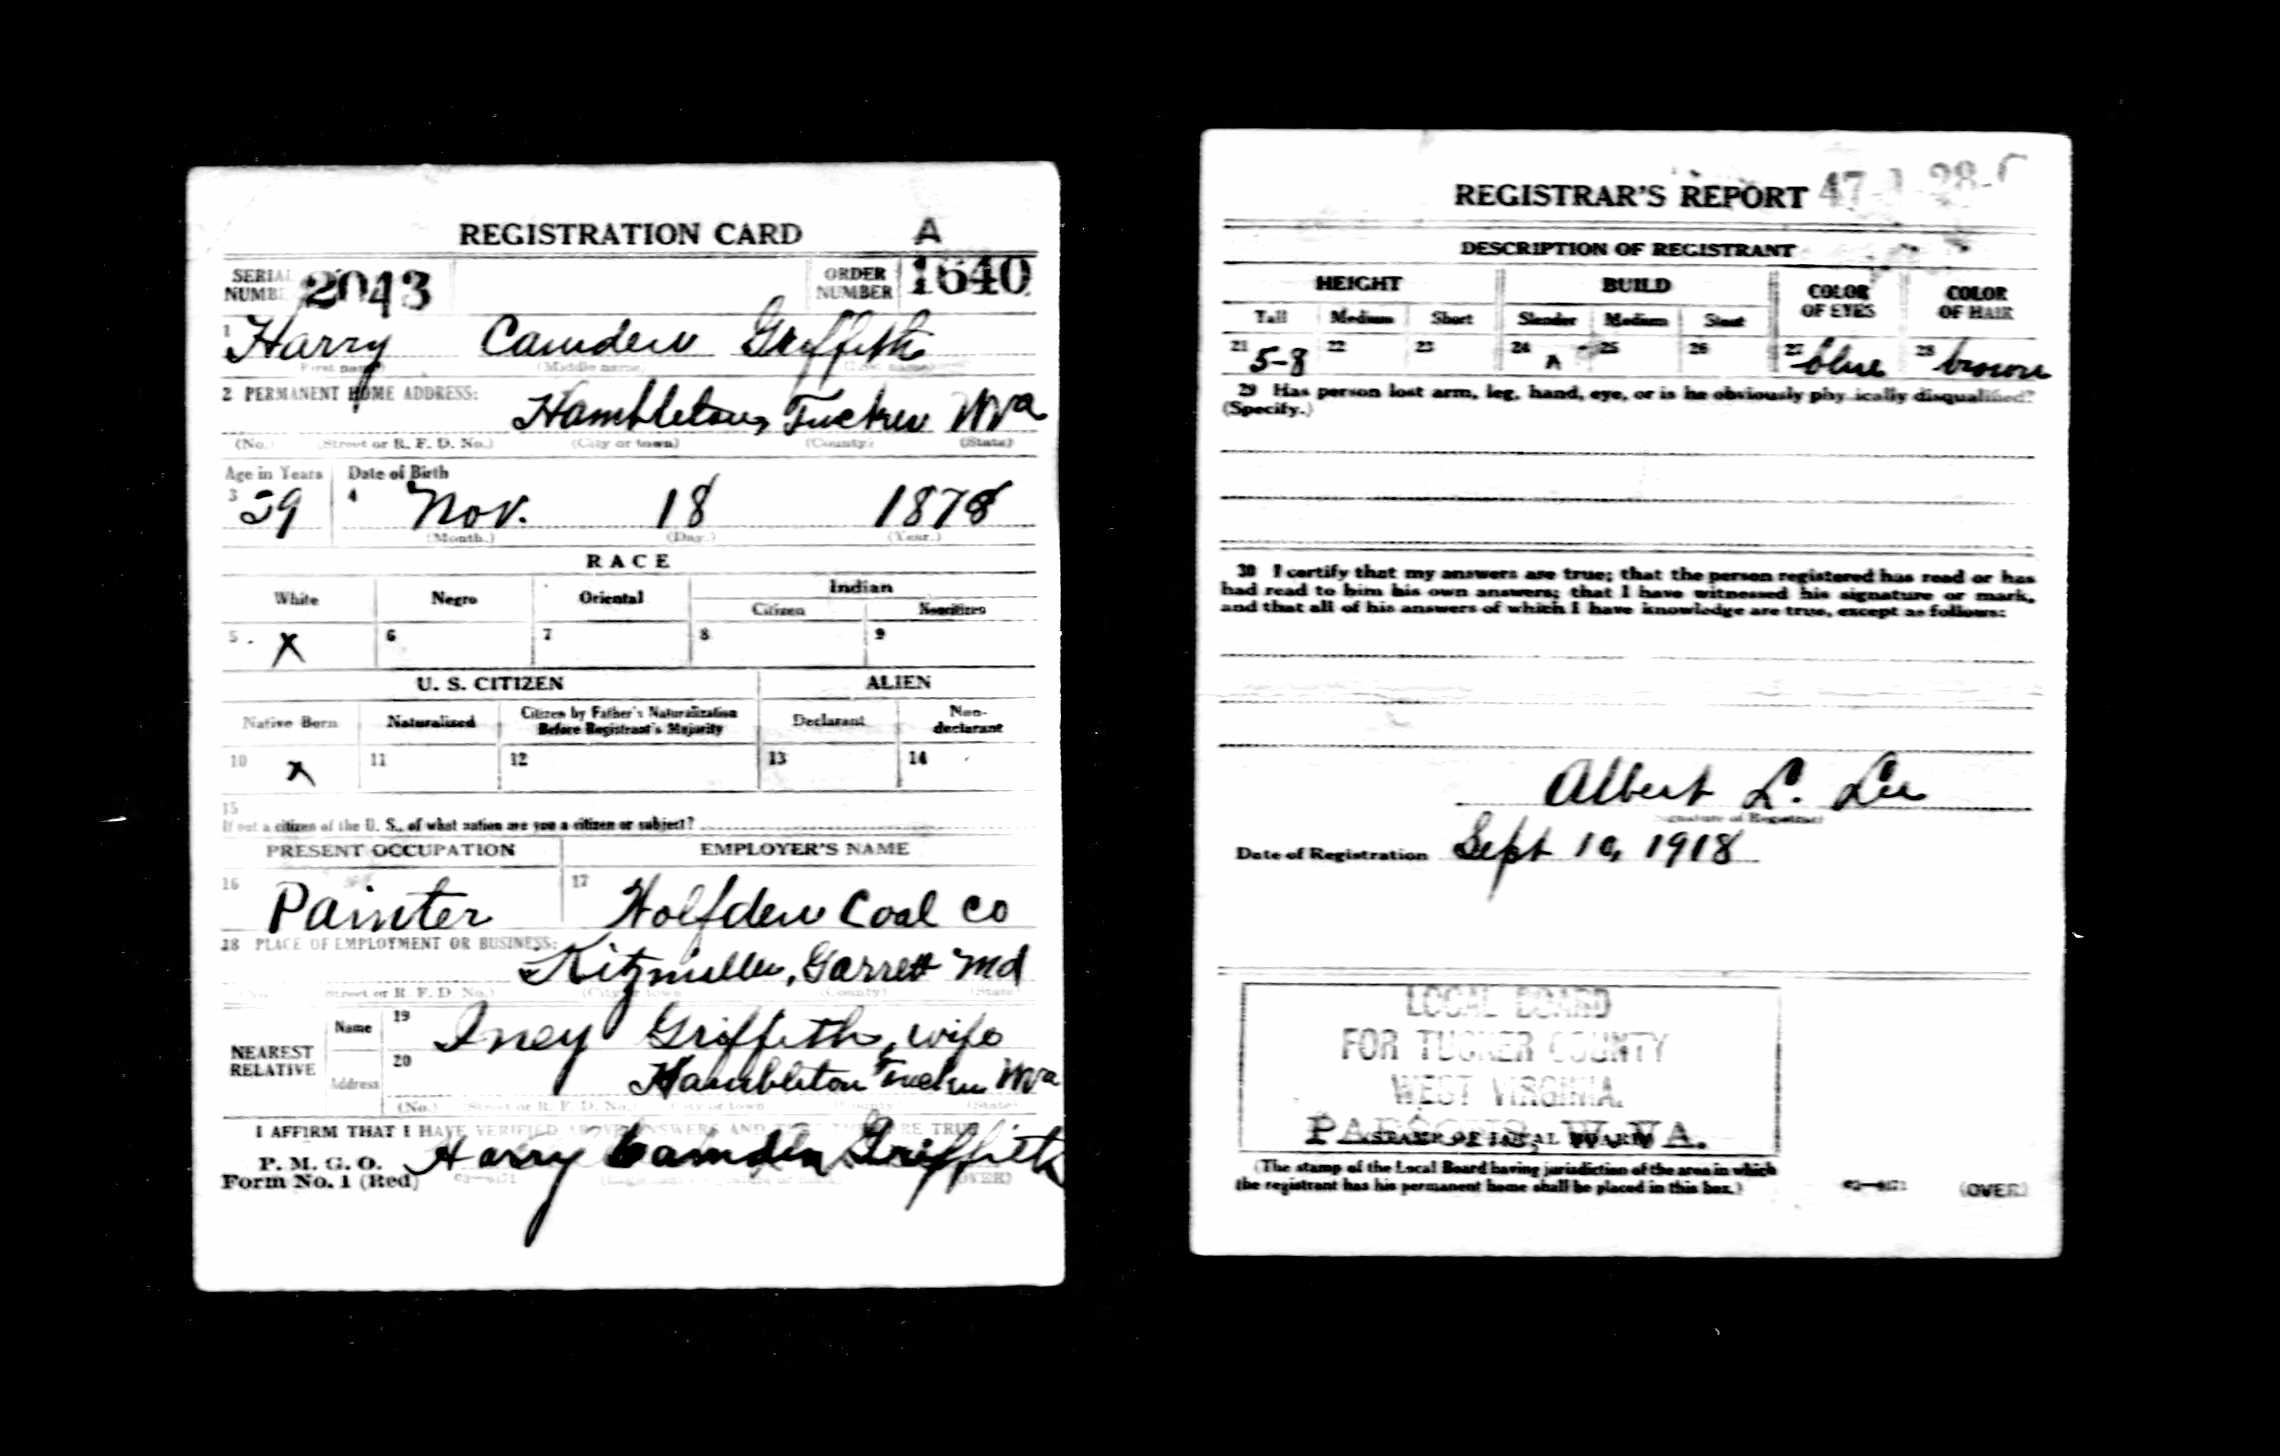 REGISTRATION CARD A
SERIAL NUMBER 2043 ORDER NUMBER 1640
1 Harry Camden Griffith
(First name) (Middle name) (Last name)
2 PERMANENT HOME ADDRESS:
Hambleton, Tucker WVa
(No.) (Street or R. F. D. No.) (City or town) (County) (State)
Age in Years Date of Birth
3 39 4 Nov. 18 1878
(Month.) (Day.) (Year.)
RACE
White Negro Oriental Indian
Citizen Noncitizen
5 X 6 7 8 9
U. S. CITIZEN ALIEN
Native Born Naturalized Citizen by Father's Naturalization Before Registrant's Majority Declarant Non-declarant
10 X 11 12 13 14
15
If not a citizen of the U. S., of what nation are you a citizen or subject?
PRESENT OCCUPATION EMPLOYER'S NAME
16 Painter 17 Wolfden Coal Co
18 PLACE OF EMPLOYMENT OR BUSINESS:
Kitzmiller, Garrett Md
(No.) (Street or R. F. D. No.) (City or town) (County) (State)
NEAREST RELATIVE
Name 19 Iney Griffith, wife
Address 20 Hambleton Tucker WVa
(No.) (Street or R. F. D. No.) (City or town) (County) (State)
I AFFIRM THAT I HAVE VERIFIED ABOVE ANSWERS AND THAT THEY ARE TRUE
P. M. G. O.
Form No. 1 (Red) Harry Camden Griffith
(OVER)
REGISTRAR'S REPORT
DESCRIPTION OF REGISTRANT
HEIGHT BUILD COLOR OF EYES COLOR OF HAIR
Tall Medium Short Slender Medium Stout
21 5-8 22 23 24 25 26 27 blue 28 brown
29 Has person lost arm, leg, hand, eye, or is he obviously physically disqualified?
(Specify.)
30 I certify that my answers are true; that the person registered has read or has
had read to him his own answers; that I have witnessed his signature or mark,
and that all of his answers of which I have knowledge are true, except as follows:
Albert L. Lee
(Signature of Registrar)
Date of Registration Sept 10, 1918
LOCAL BOARD
FOR TUCKER COUNTY
WEST VIRGINIA.
PARSONS, W. VA.
(STAMP OF LOCAL BOARD)
(The stamp of the Local Board having jurisdiction of the area in which
the registrant has his permanent home shall be placed in this box.)
(OVER)